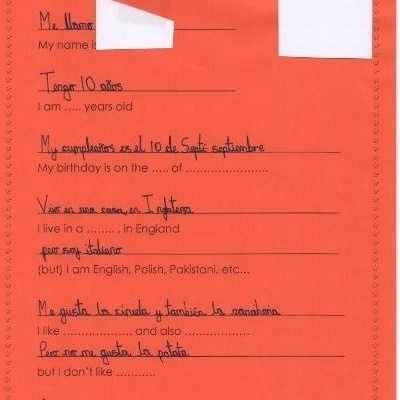 Me llamo
My name is
Tengo 10 años
I am ..... years old
My cumpleaños es el 10 de Septi septiembre
My birthday is on the ..... of ........................
Vivo en una casa, en Inglaterra
I live in a ........ , in England
pero soy italiano
(but) I am English, Polish, Pakistani, etc...
Me gusta la ciruela y también la zanahoria
I like .................... and also ...................
Pero no me gusta la patata
but I don't like ...........